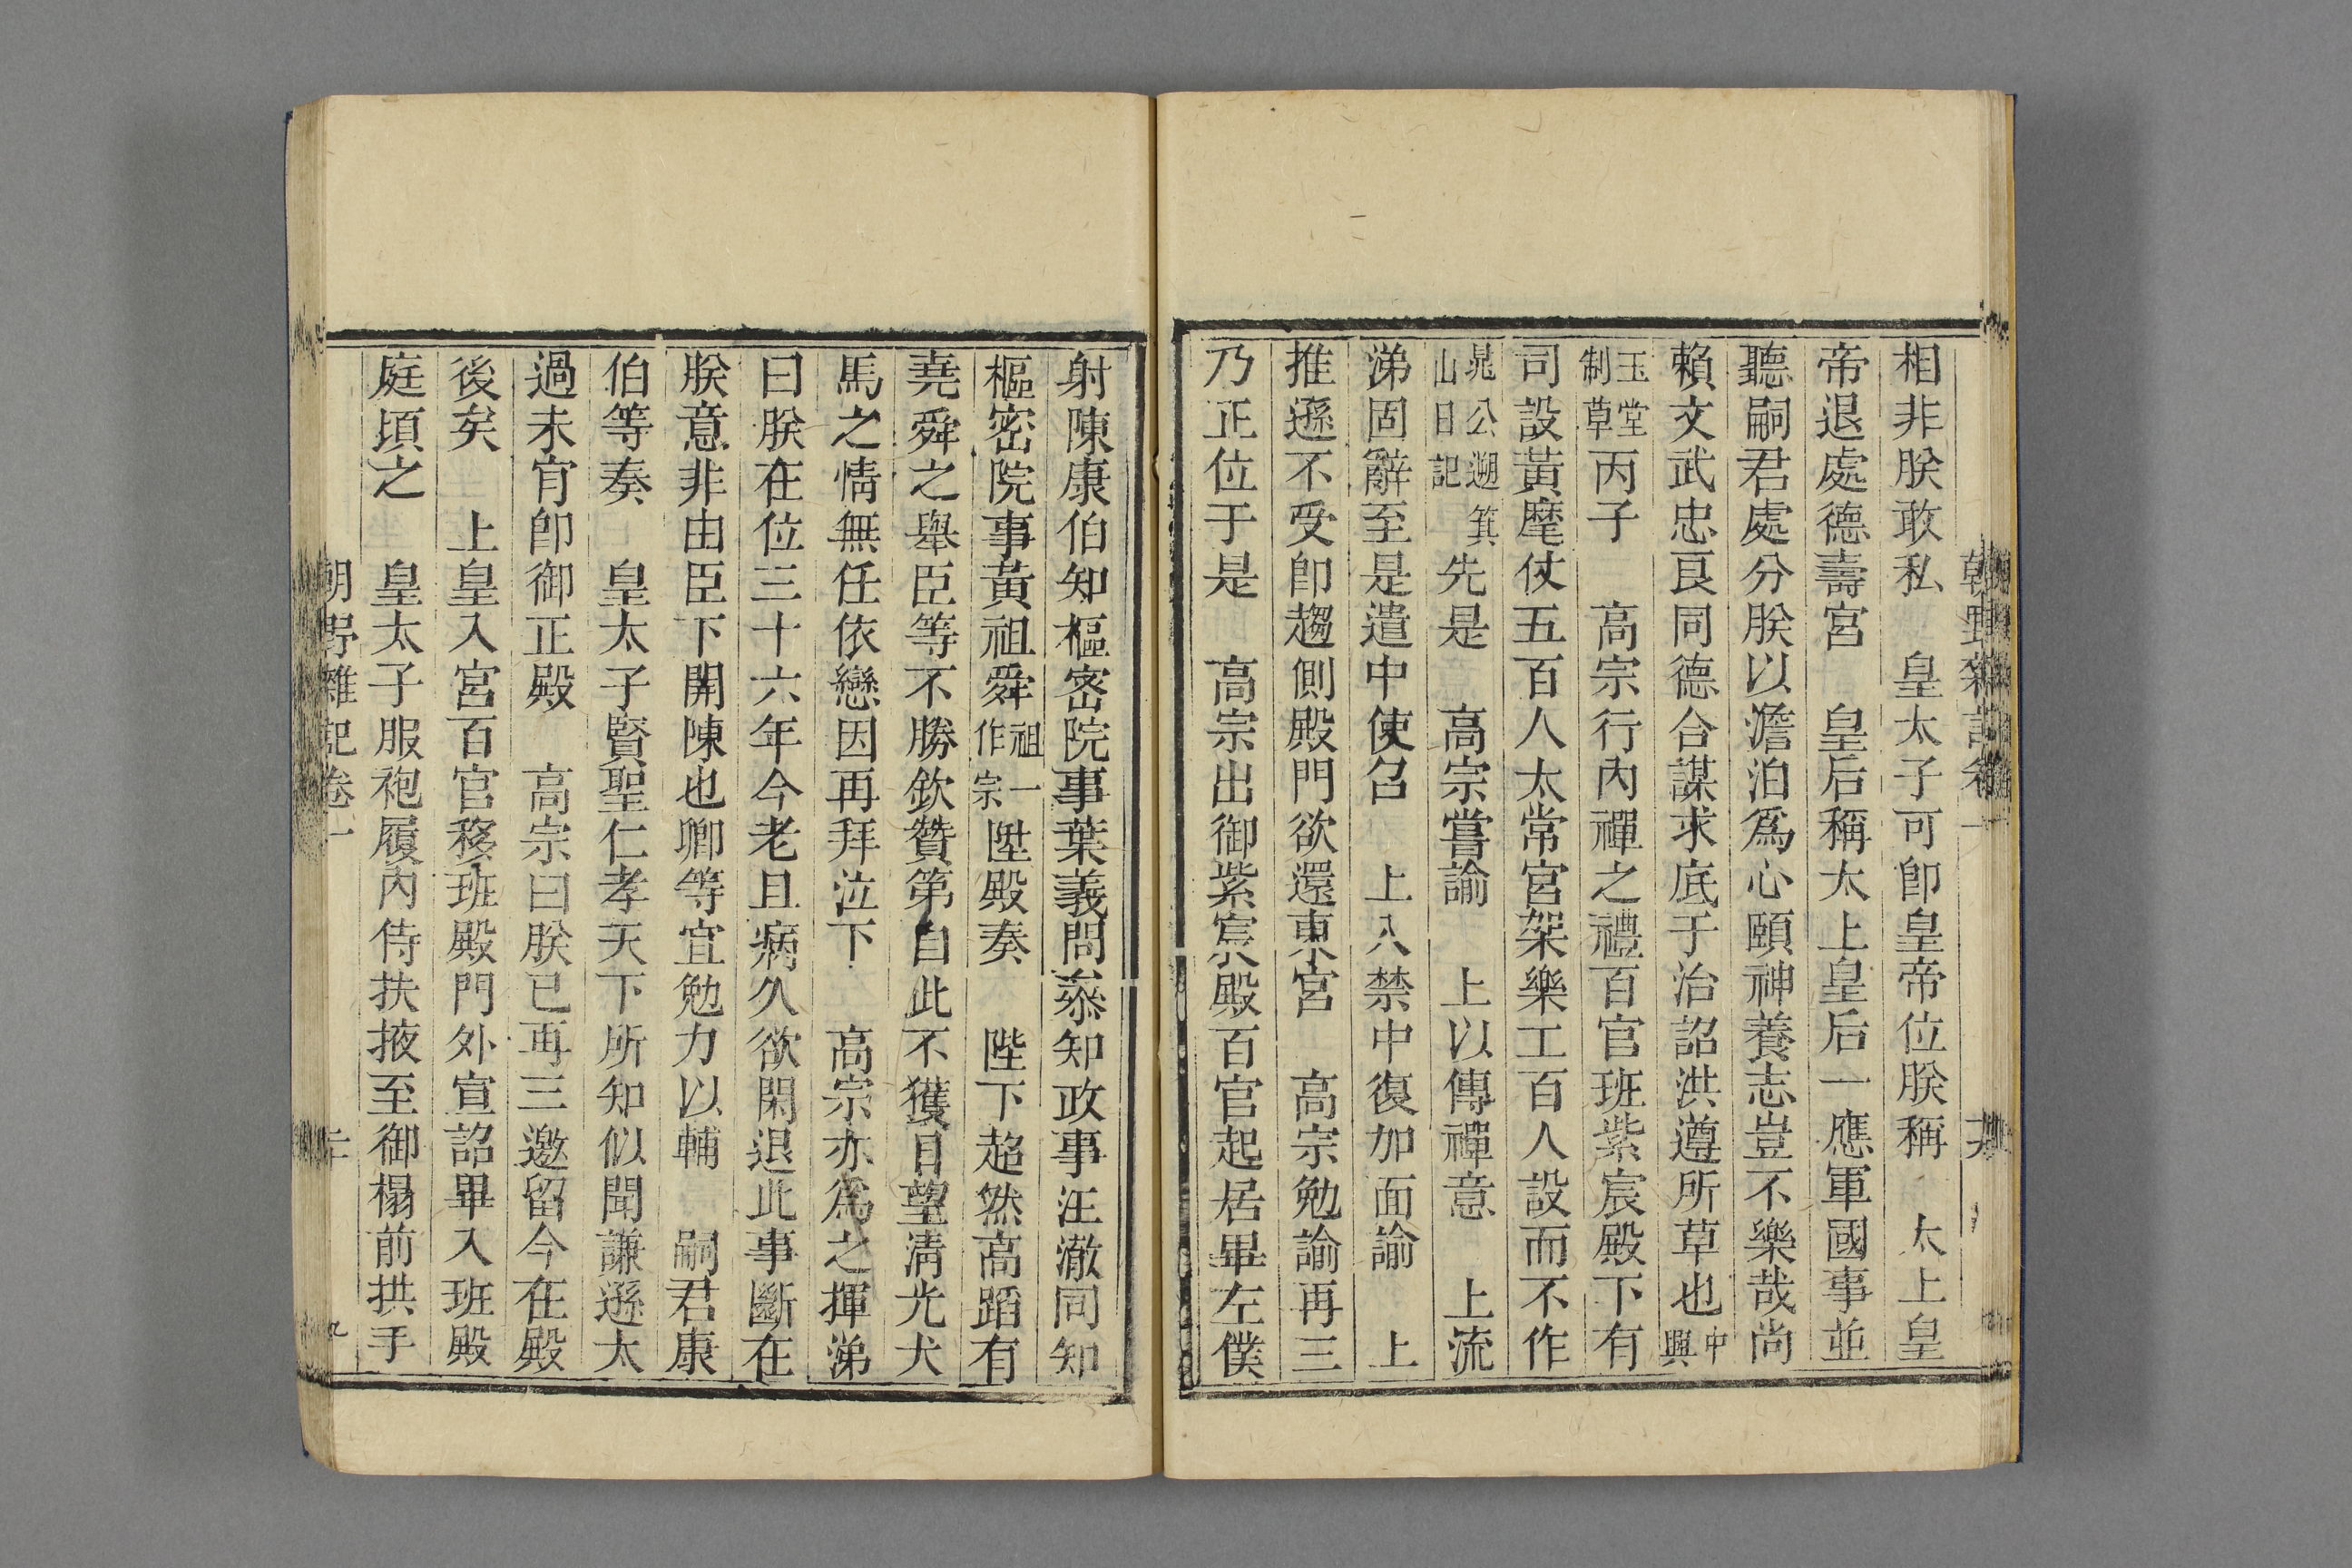 相非朕敢私　皇太子可卽皇帝位朕稱　太上皇
帝退處德壽宮　皇后稱太上皇后一應軍國事並
聽嗣君處分朕以澹泊爲心頤神養志豈不樂哉尚
賴文武忠良同德合謀求底于治詔洪遵所草也中興
玉堂制草丙子　高宗行內禪之禮百官班紫宸殿下有
司設黃麾仗五百人太常宮架樂工百人設而不作
晁公遡箕山日記先是　高宗嘗諭　上以傳禪意　上流
涕固辭至是遣中使召　上入禁中復加面諭　上
推遜不受卽趨側殿門欲還東宮　高宗勉諭再三
乃正位于是　高宗出御紫宸殿百官起居畢左僕
射陳康伯知樞密院事葉義問叅知政事汪澈同知
樞密院事黃祖舜祖一作宗陞殿奏　陛下超然高蹈有
堯舜之舉臣等不勝欽贊第自此不獲日望淸光犬
馬之情無任依戀因再拜泣下　高宗亦爲之揮涕
曰朕在位三十六年今老且病久欲閑退此事斷在
朕意非由臣下開陳也卿等宜勉力以輔　嗣君康
伯等奏　皇太子賢聖仁孝天下所知似聞謙遜太
過未肯卽御正殿　高宗曰朕已再三邀留今在殿
後矣　上皇入宮百官移班殿門外宣詔畢入班殿
庭頃之　皇太子服袍履內侍扶掖至御榻前拱手
朝野雜記卷一